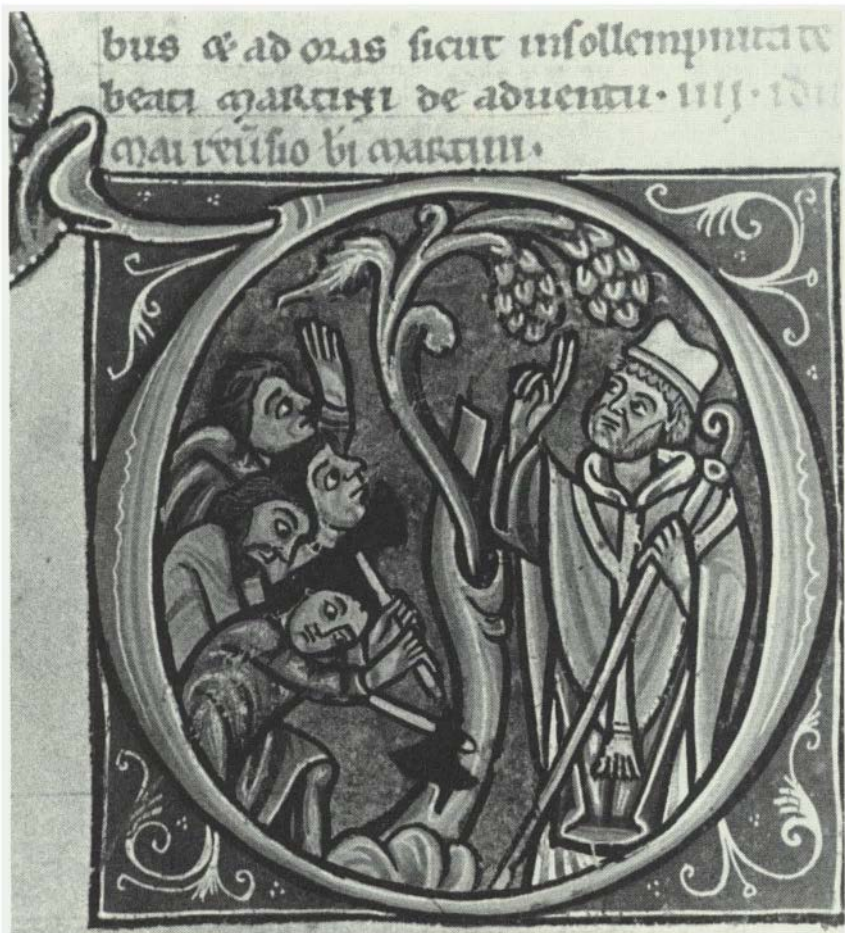 bus & ad oras sicut insollempnitate
beati martini de aduentu · iiii · idu
mai reu̅sio bi̅ martini ·